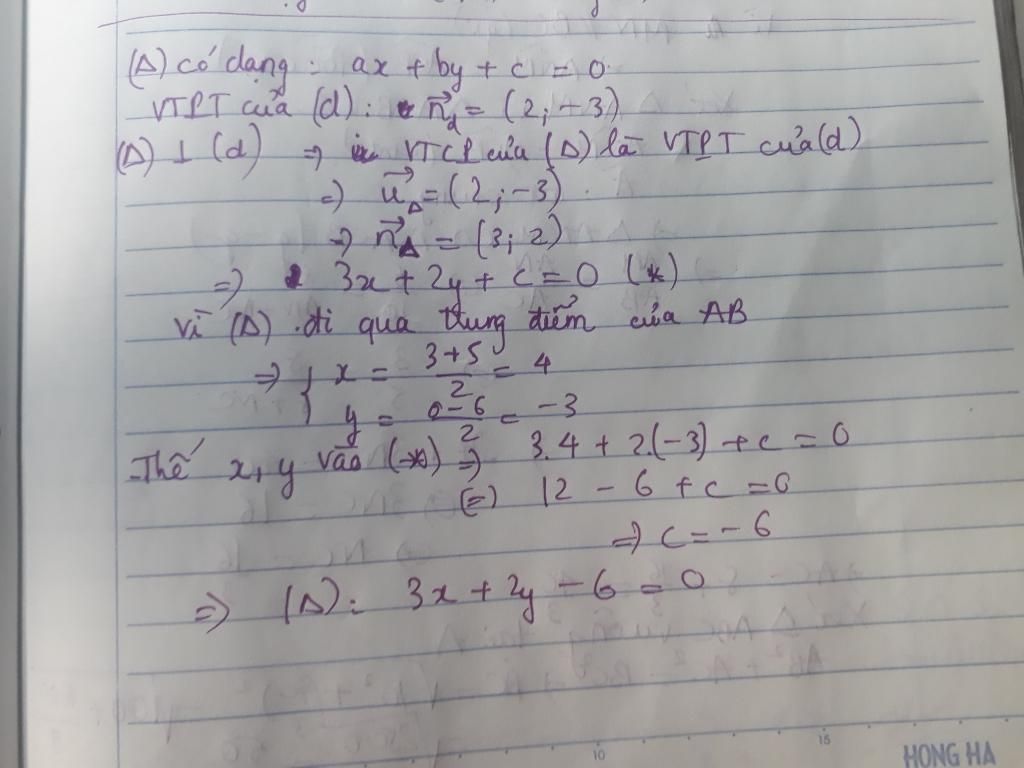 (Δ) có dạng : ax + by + c = 0
VTPT của (d) : n⃗d = (2; -3)
(Δ) ⊥ (d) ⇒ VTCP của (Δ) là VTPT của (d)
⇒ u⃗Δ = (2; -3)
⇒ n⃗Δ = (3; 2)
⇒ 3x + 2y + c = 0 (*)
Vì (Δ) đi qua trung điểm của AB
⇒ { x = (3+5)/2 = 4
y = (0-6)/2 = -3
Thế x, y vào (*) ⇒ 3.4 + 2.(-3) + c = 0
(=) 12 - 6 + c = 0
⇒ c = -6
⇒ (Δ): 3x + 2y - 6 = 0
10 15
HONG HA